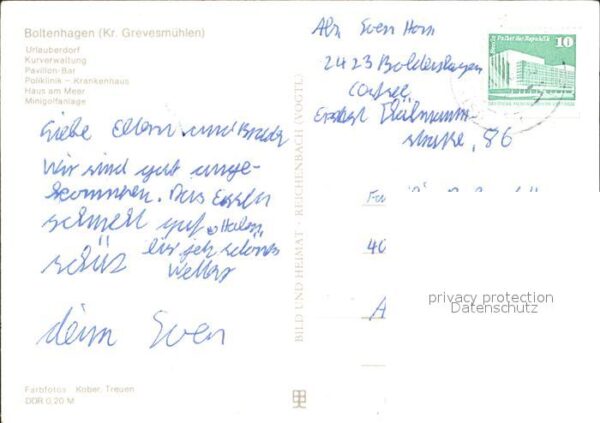 Boltenhagen (Kr. Grevesmühlen)
Urlauberdorf
Kurverwaltung
Pavillon-Bar
Poliklinik – Krankenhaus
Haus am Meer
Minigolfanlage
Liebe Eltern und
Wir sind gut ange-
kommen. Das Essen
schmekt gut. Haben
bis jetz schönes
Wetter
dein Sven
Farbfotos: Kober, Treuen
DDR 0,20 M
BILD UND HEIMAT · REICHENBACH (VOGTL)
Abs Sven Horn
2423 Boldenhagen
Ostsee
Ernst Thälmann-
straße, 86
Berlin Palast der Republik
10
40
A
privacy protection
Datenschutz